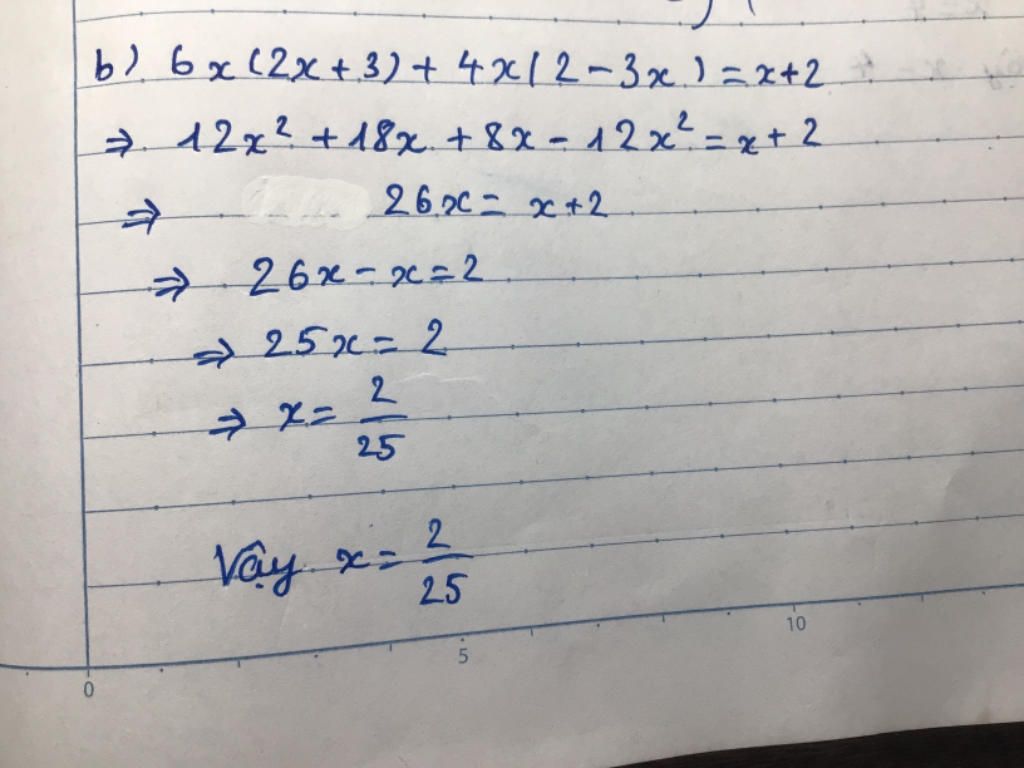 b) 6x(2x+3)+4x(2-3x)=x+2
⇒ 12x² +18x +8x - 12x² = x+2
⇒ 26x = x+2
⇒ 26x - x = 2
⇒ 25x = 2
⇒ x = 2/25
Vậy x = 2/25
0 5 10